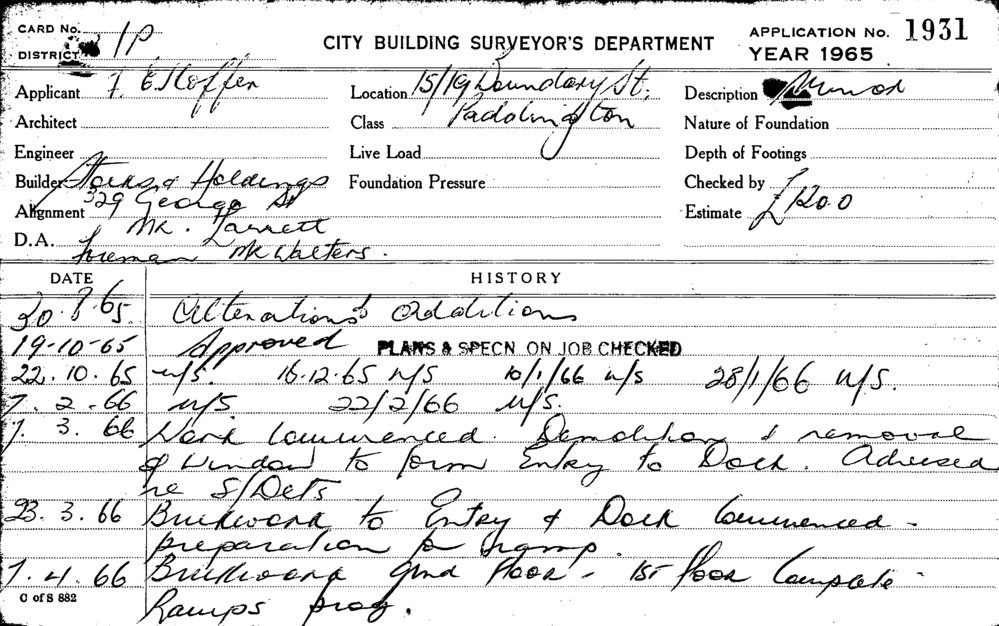 CARD No. 1P
DISTRICT
CITY BUILDING SURVEYOR'S DEPARTMENT
APPLICATION No. 1931
YEAR 1965
Applicant F.
Location 15/19 Boundary St.
Paddington
Description Minor
Architect
Class
Nature of Foundation
Engineer
Live Load
Depth of Footings
Builder Holdings
329 George St
Foundation Pressure
Checked by
Alignment
Mr.
Estimate £1200
D.A.
Foreman Mr Walters.
DATE
HISTORY
30.8.65 Alterations & Additions
19-10-65 Approved PLANS & SPECN ON JOB CHECKED
22.10.65 n/s. 16.12.65 n/s 10/1/66 n/s 28/1/66 n/s.
7.2.66 n/s 22/2/66 n/s.
7.3.66 Work commenced. Demolition & removal
of window to form Entry to Dock. Advised
re S/Dets
23.3.66 Brickwork to Entry & Dock commenced -
preparation for ramp.
7.4.66 Brickwork grnd floor - 1st floor complete
C of S 882
Ramps prog.